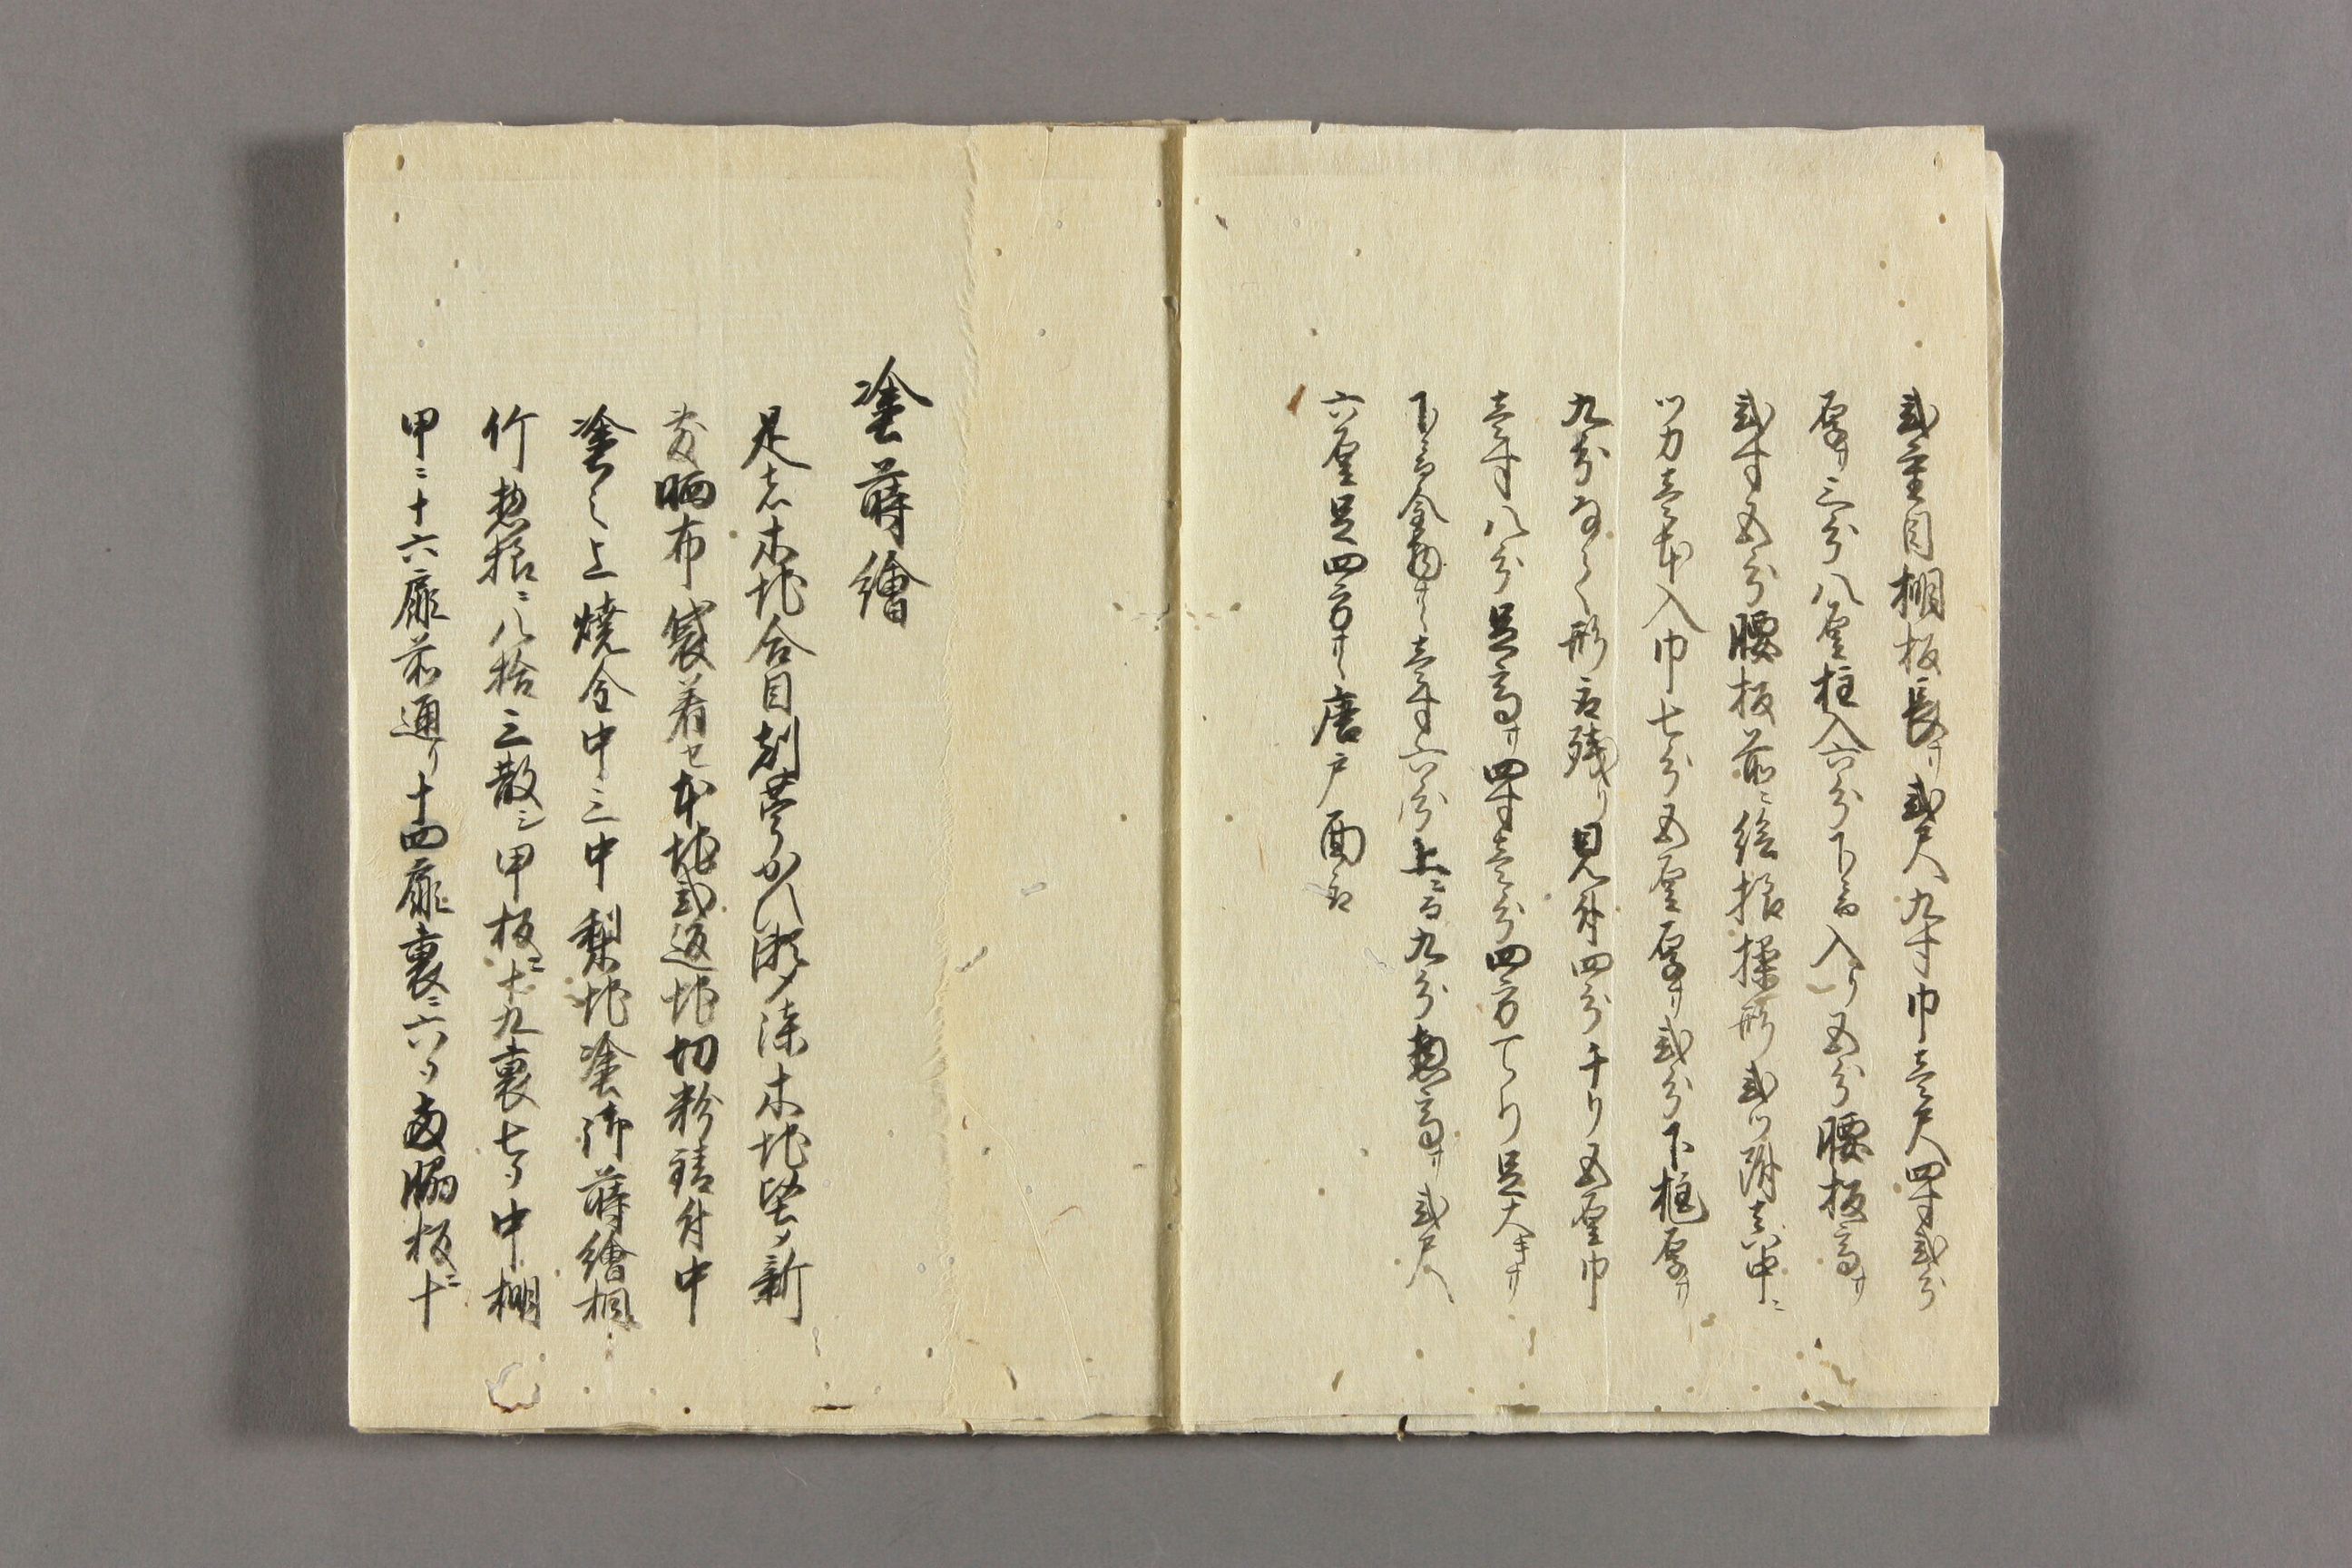 弐重目棚板長サ弐尺九寸巾壱尺四寸弐分
厚サ三分八厘柱入六分下ニ而入り五分腰板高サ
弐寸五分腰板前ニ絵招操形弐ツ附真中ニ
ツカ壱本入巾七分五厘厚サ弐分下框厚サ
九分なくり形ニ而残り見付四分チリ五厘巾
壱寸八分足高サ四寸壱分四方てり足大キサ
下ニ而金物サ壱寸六分上ニ而九分惣高サ弐尺
六厘足四方サ唐戸面ニ而
塗蒔繪
足志木地合目刻苧かい瀬〆漆木地堅〆新
麦晒布袋着セ本地弐返地切粉錆付中
塗之上焼金中三中梨地塗御蒔繪桐ニ
竹惣捻ニ八拾三散シ甲板ニ十九裏七ツ中棚
甲ニ十六扉前通り十四扉裏ニ六ツ両脇板ニ十